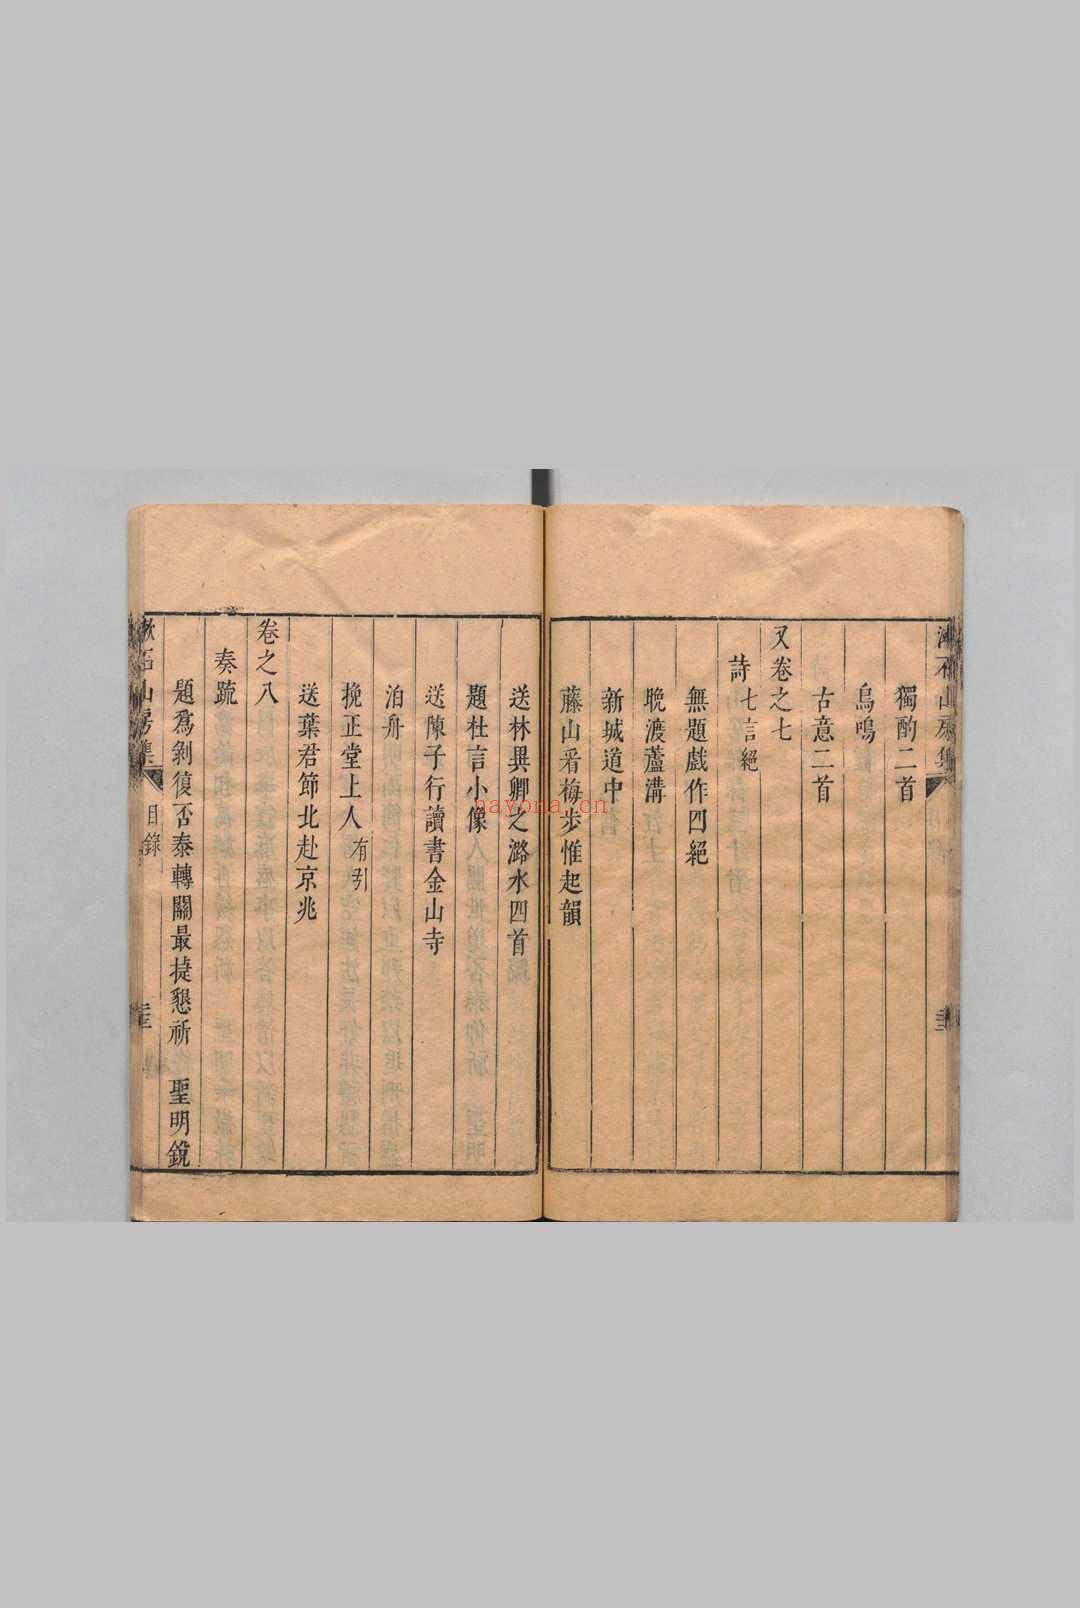 獨酌二首
烏鳴
古意二首
又卷之七
詩七言絕
無題戲作四絕
晚渡蘆溝
新城道中
藤山看梅步惟起韻
送林異卿之潞水四首
題杜言小像
送陳子行讀書金山寺
泊舟
挽正堂上人有引
送葉君節北赴京兆
卷之八
奏疏
題為剝復否泰轉關最捷懇祈 聖明銳
漱石山房集 目錄
nayona.cn